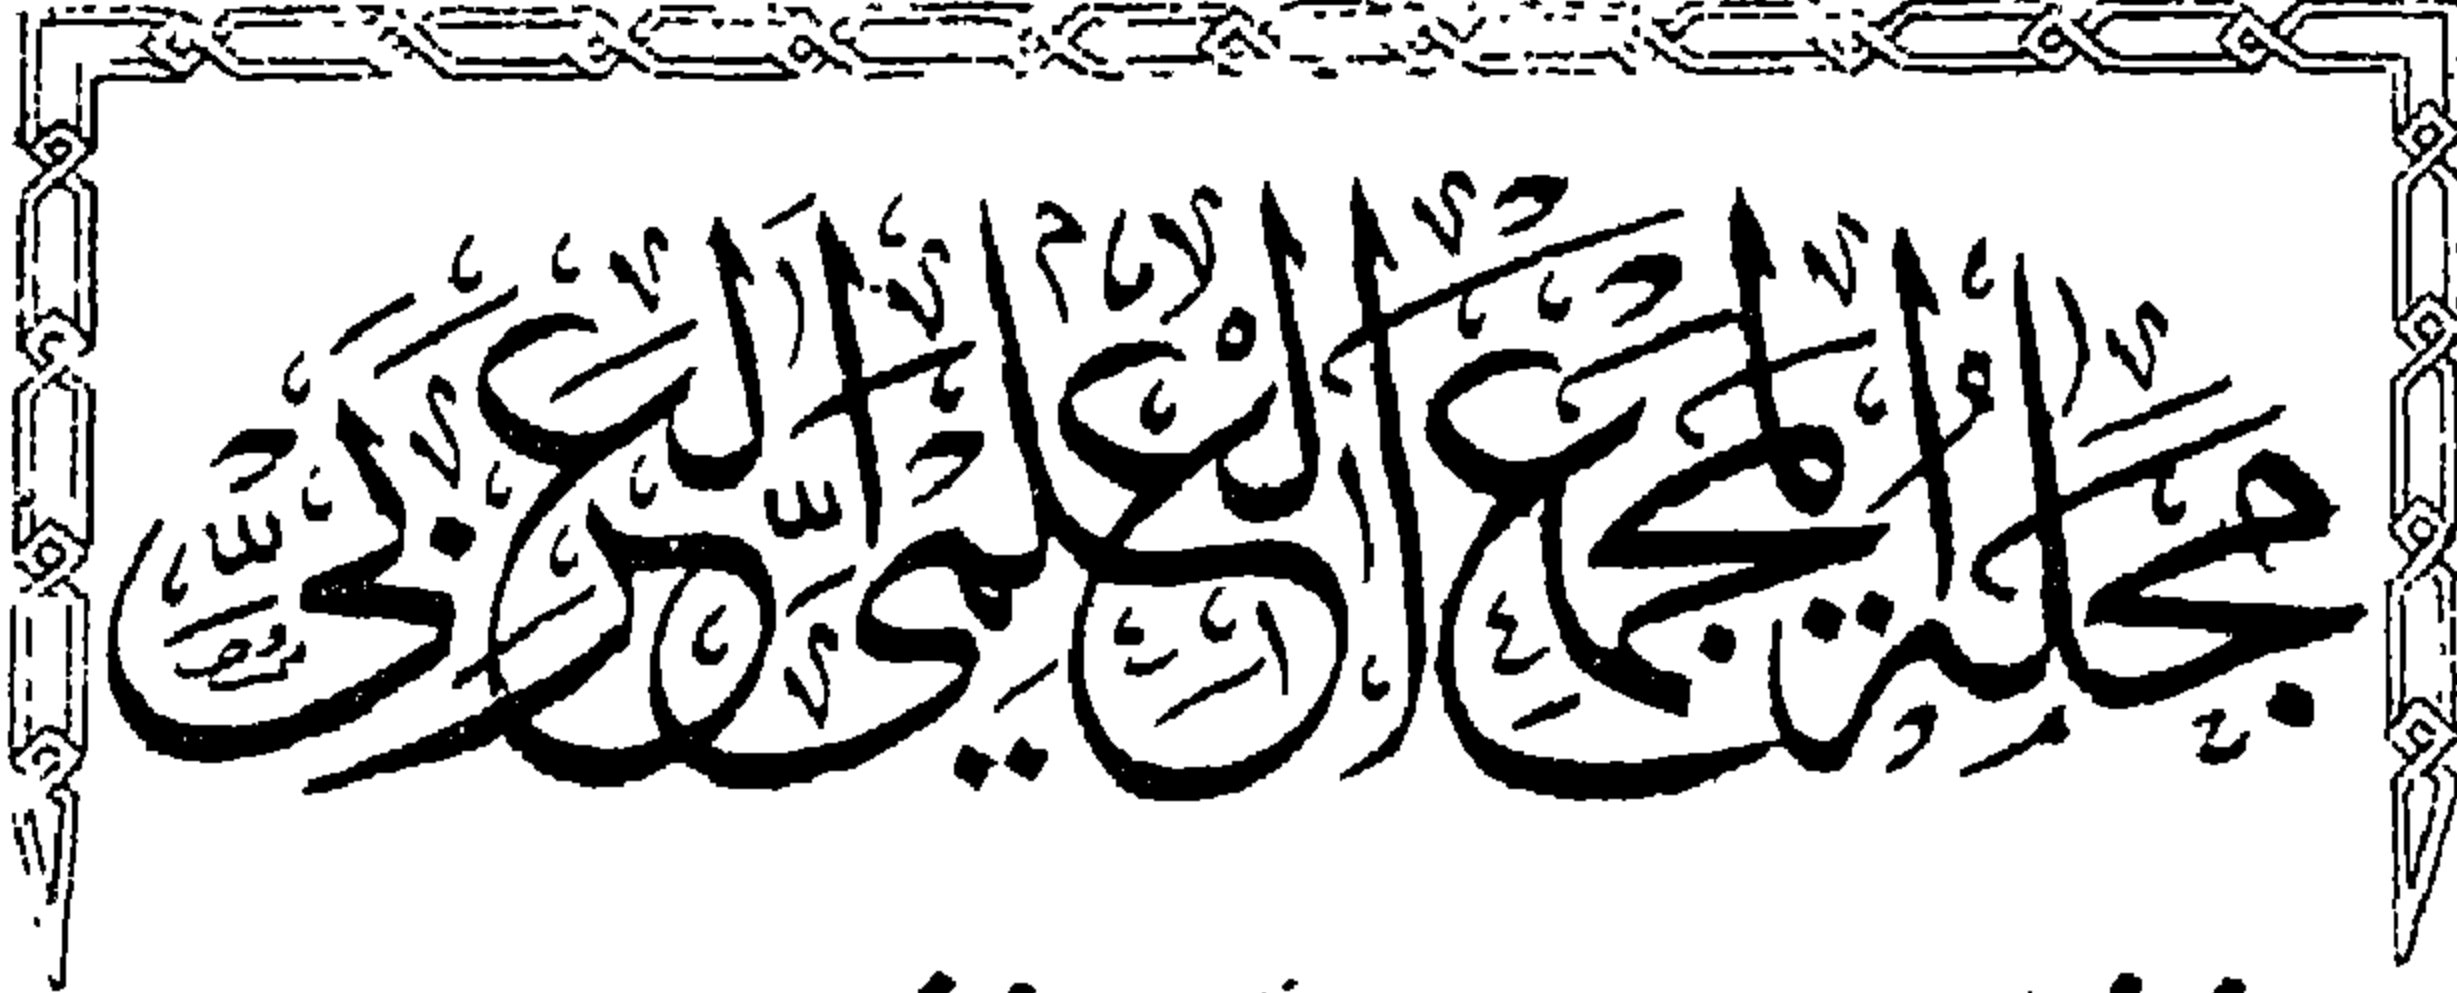 مجلة المجمع العلمي العراقي